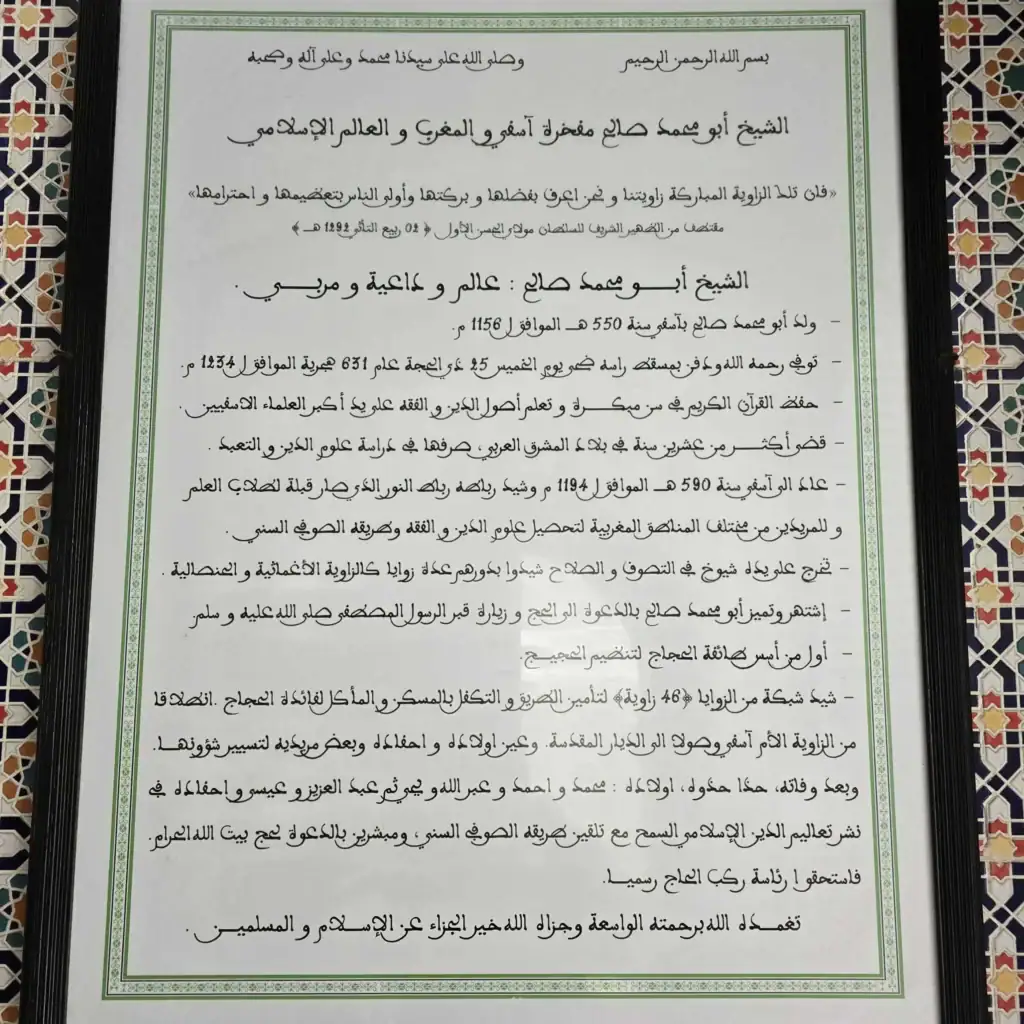 بسم الله الرحمن الرحيم وصلى الله على سيدنا محمد وعلى آله وصحبه
الشيخ أبو محمد صالح مفخرة آسفي و المغرب و العالم الإسلامي
«فان تلك الزاوية المباركة زاويتنا و نحن اعرف بفضلها و بركتها وأولى الناس بتعظيمها و احترامها»
مقتطف من الظهير الشريف للسلطان مولاي الحسن الأول ﴿ 02 ربيع الثاني 1292 هـ ﴾
الشيخ أبـــو محمد صالح : عالم و داعية و مربـــي .
– ولد أبو محمد صالح بآسفي سنة 550 هـ الموافق ل 1156 م.
– توفي رحمه الله ودفن بمسقط راسه ضحى يوم الخميس 25 ذي الحجة عام 631 هجرية الموافق ل 1234 م.
– حفظ القرآن الكريم في سن مبكـــرة و تعلم أصول الدين و الفقه على يد أكبر العلماء الاسفيين .
– قضى أكثـــر من عشرين سنة في بلاد المشرق العربي، صرفها في دراسة علوم الدين و التعبد .
– عاد الى آسفي سنة 590 هـ الموافق ل 1194 م وشيد رباطه رباط النور الذي صار قبلة لطلاب العلم
و للمريدين من مختلف المناطق المغربية لتحصيل علوم الدين و الفقه وطريقه الصوفي السني .
– تخرج على يده شيوخ في التصوف و الصلاح شيدوا بدورهم عدة زوايا كالزاوية الأغماتية و الحنصالية .
– إشتهر وتميز أبو محمد صالح بالدعوة الى الحج و زيارة قبر الرسول المصطفى صلى الله عليه و سلم.
– أول من أسس طائفة الحجاج لتنظيم الحجيـــج.
– شيد شبكة من الزوايا ﴿46 زاوية﴾ لتأمين الطريق و التكفل بالمسكن و المأكل لفائدة الحجاج .انطلاقا
من الزاوية الأم آسفي وصولا الى الديار المقدسة. وعين اولاده و احفاده وبعض مريديه لتسيير شؤونهـا.
وبعد وفاته، حذا حذوه، اولاده : محمد و احمد و عبر الله و يحي ثم عبد العزيز و عيسى و احفاده في
نشر تعاليم الدين الإسلامي السمح مع تلقين طريقه الصوفي السني، ومبشرين بالدعوة لحج بيت الله الحرام.
فاستحقوا رئاسة ركب الحاج رسميـا.
تغمـــده الله برحمته الواسعة وجزاه الله خير الجزاء عن الإســلام و المسلميـن .